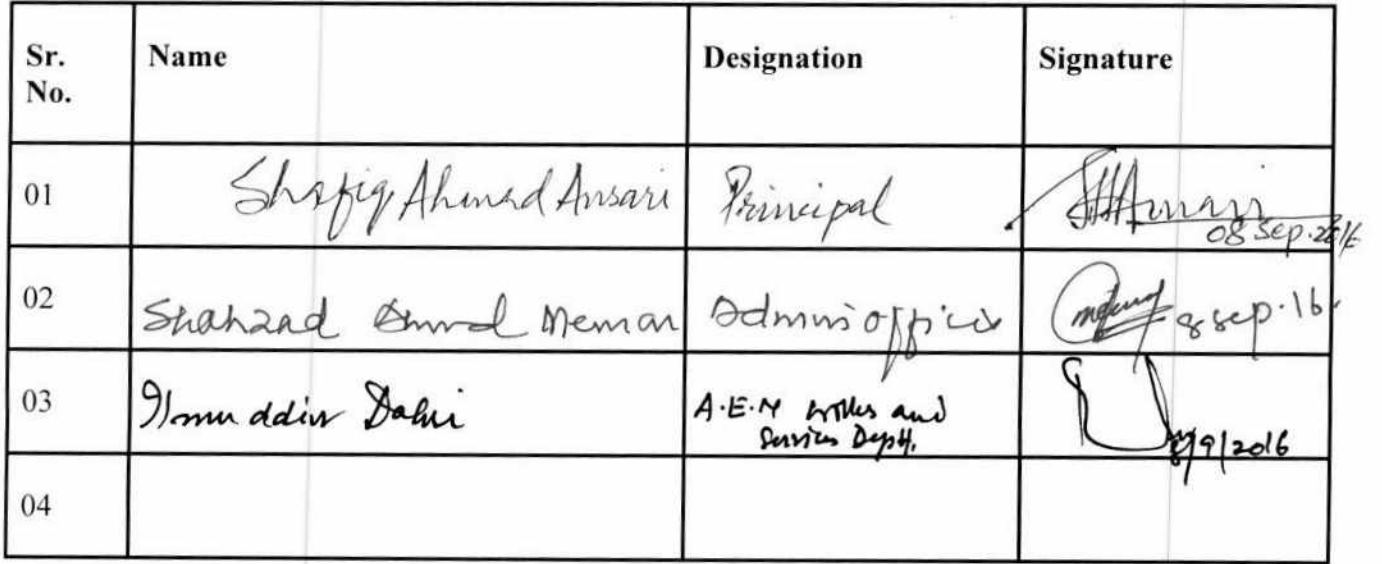 Sr. No. Name Designation Signature
01 Shafiq Ahmad Ansari Principal
08 Sep. 2016
02 Shahzad Ahmed Memon Admin officer 8 sep. 16
03 Dahri A.E.N works and
Services Deptt. 8/9/2016
04